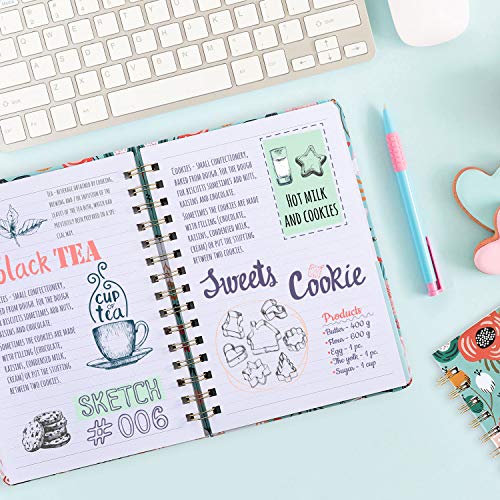 TEA - BEVERAGE OBTAINED BY COOKING,
BREWING AND / OR INFUSION OF THE
LEAVES OF THE TEA BUSH, WHICH HAD
PREVIOUSLY BEEN PREPARED IN A SPE-
CIAL WAY.
black TEA
COOKIES - SMALL CONFECTIONERY,
BAKED FROM DOUGH. FOR THE DOUGH
FOR BISCUITS SOMETIMES ADD NUTS,
RAISINS AND CHOCOLATE.
SOMETIMES THE COOKIES ARE MADE
WITH FILLING (CHOCOLATE,
RAISINS, CONDENSED MILK,
CREAM) OR PUT THE STUFFING
BETWEEN TWO COOKIES.
cup
of
tea
SKETCH
#006
COOKIES - SMALL CONFECTIONERY,
BAKED FROM DOUGH. FOR THE DOUGH
FOR BISCUITS SOMETIMES ADD NUTS,
RAISINS AND CHOCOLATE.
SOMETIMES THE COOKIES ARE MADE
WITH FILLING (CHOCOLATE,
RAISINS, CONDENSED MILK,
CREAM) OR PUT THE STUFFING
BETWEEN TWO COOKIES.
HOT MILK
AND COOKIES
Sweets Cookie
Products
- Butter - 400 g
- Flour - 600 g
- Egg - 1 pc.
- The yolk - 1 pc.
- Sugar - 1 cup